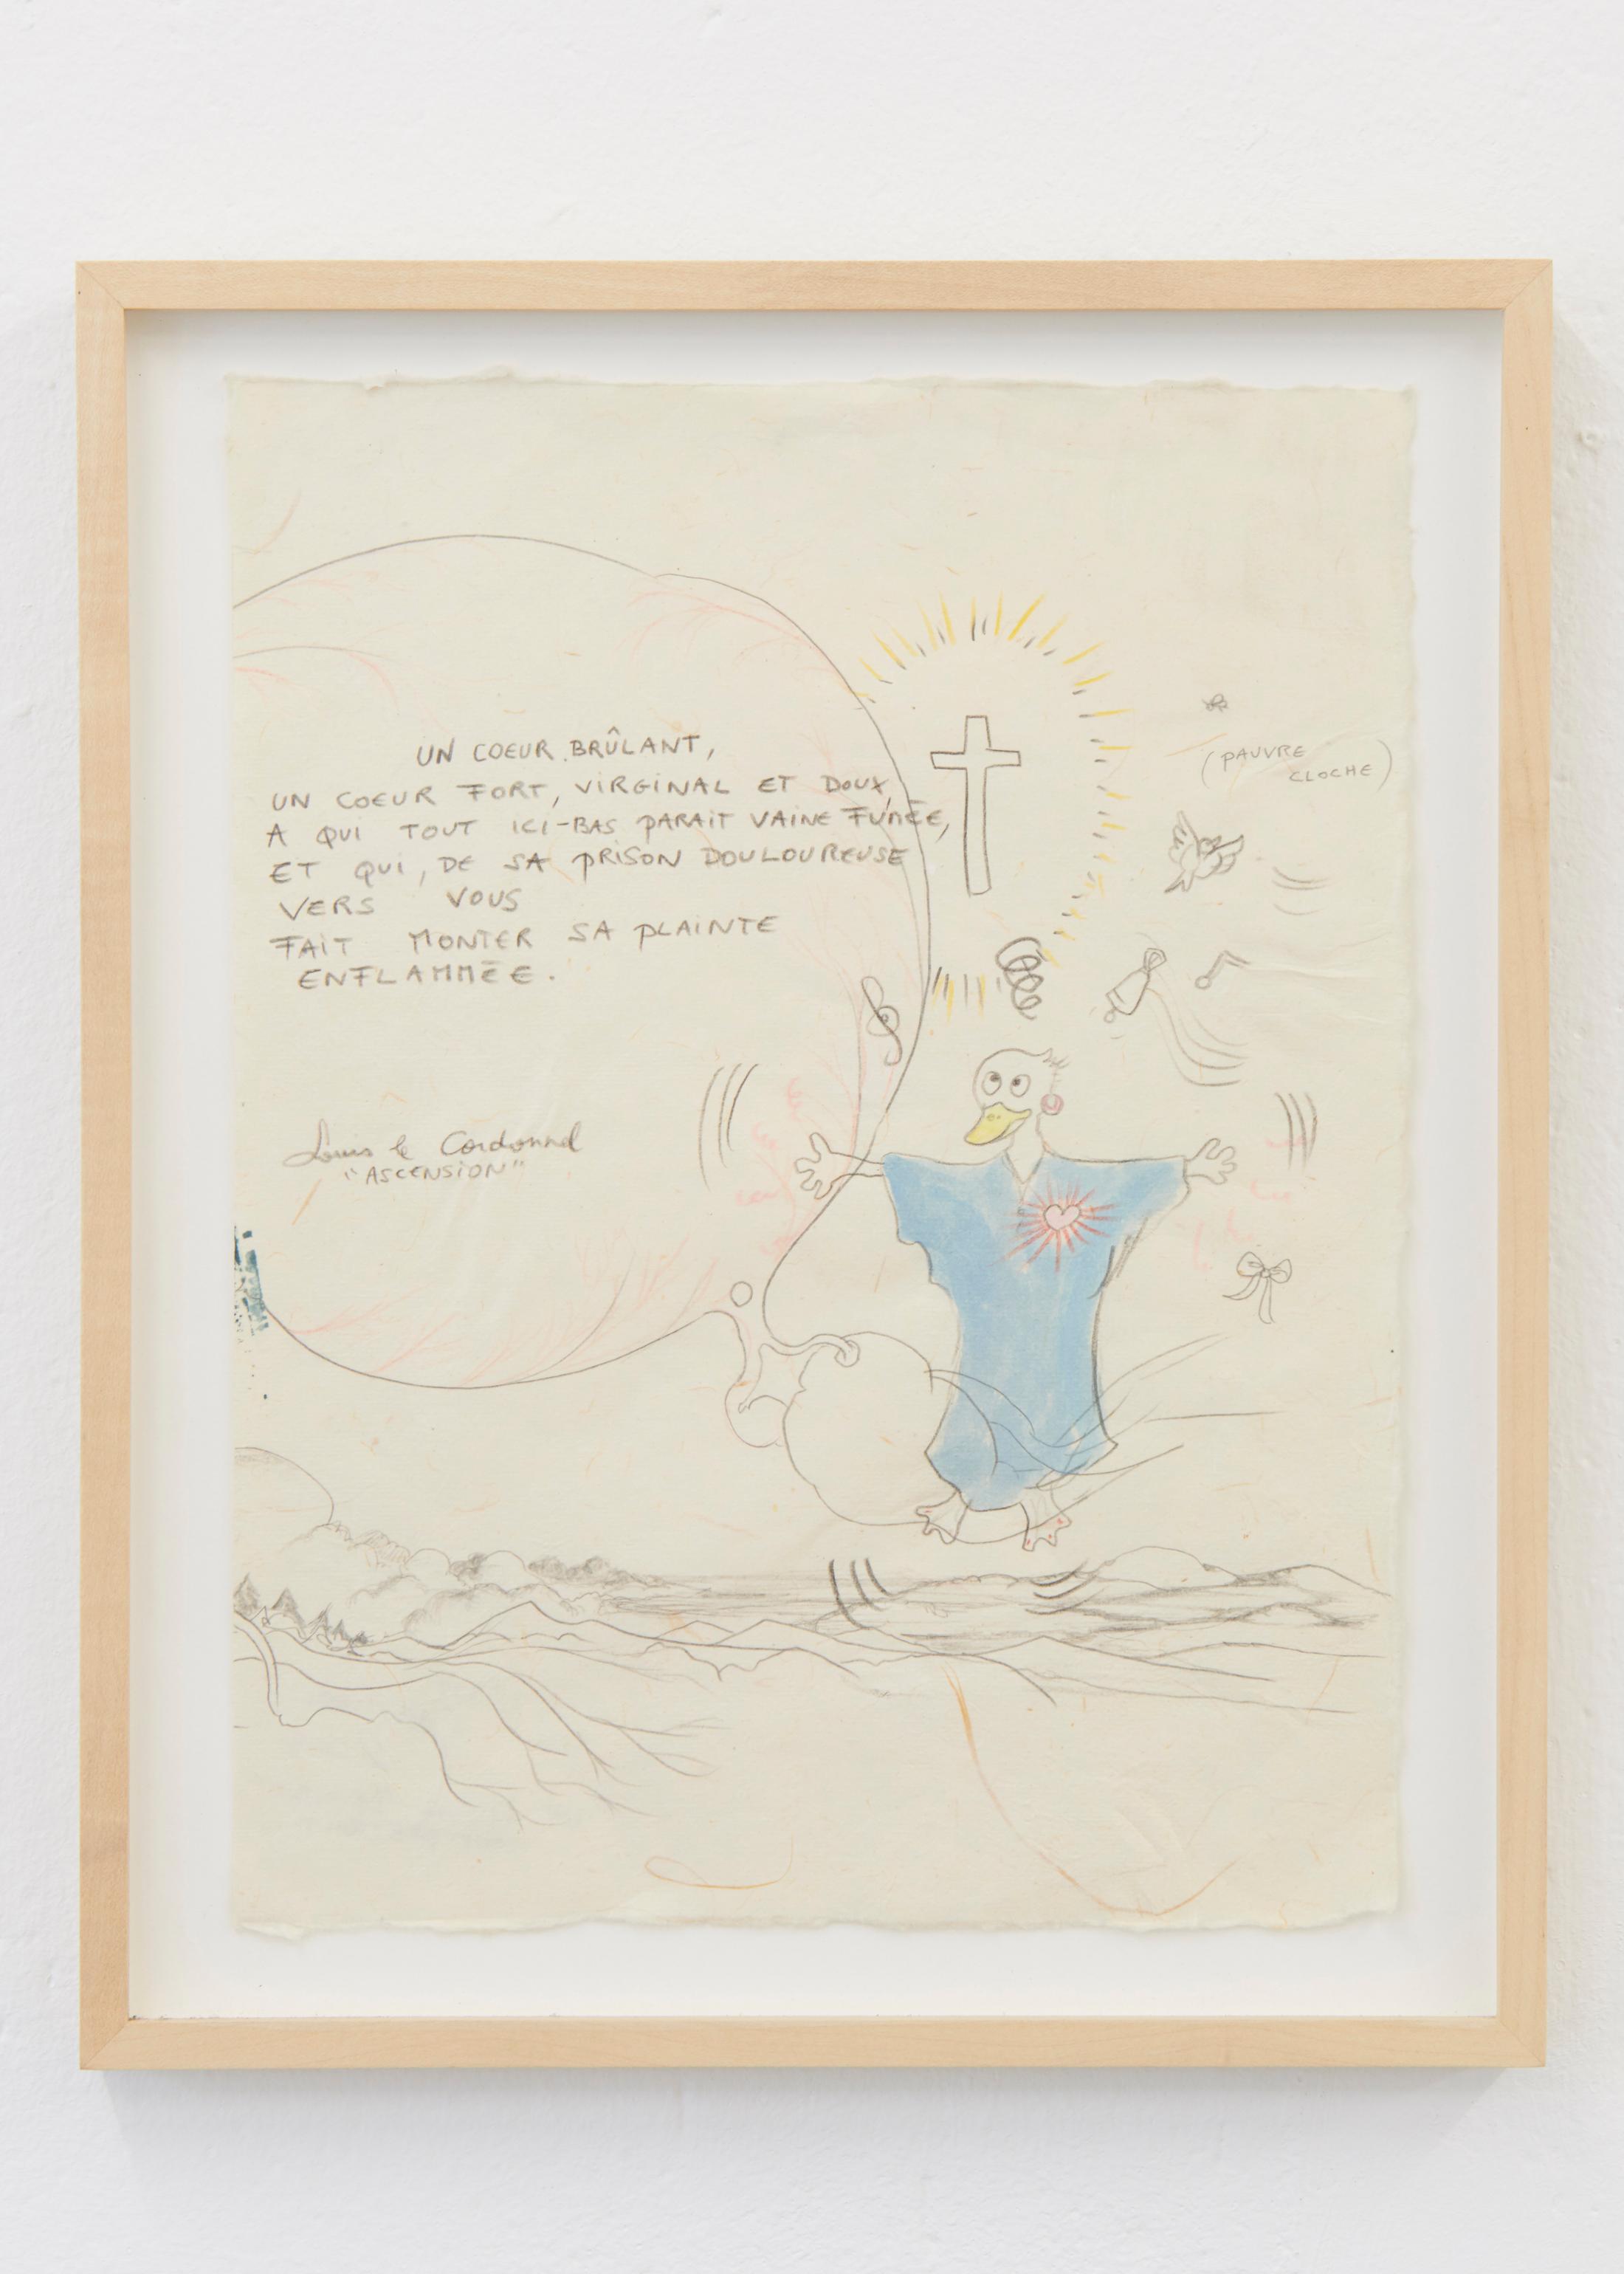 UN COEUR BRÛLANT,
UN COEUR FORT, VIRGINAL ET DOUX,
A QUI TOUT ICI-BAS PARAIT VAINE FUMÉE,
ET QUI, DE SA PRISON DOULOUREUSE
VERS VOUS
FAIT MONTER SA PLAINTE
ENFLAMMÉE.
(PAUVRE
CLOCHE)
Louis le Cardonnel
"ASCENSION"